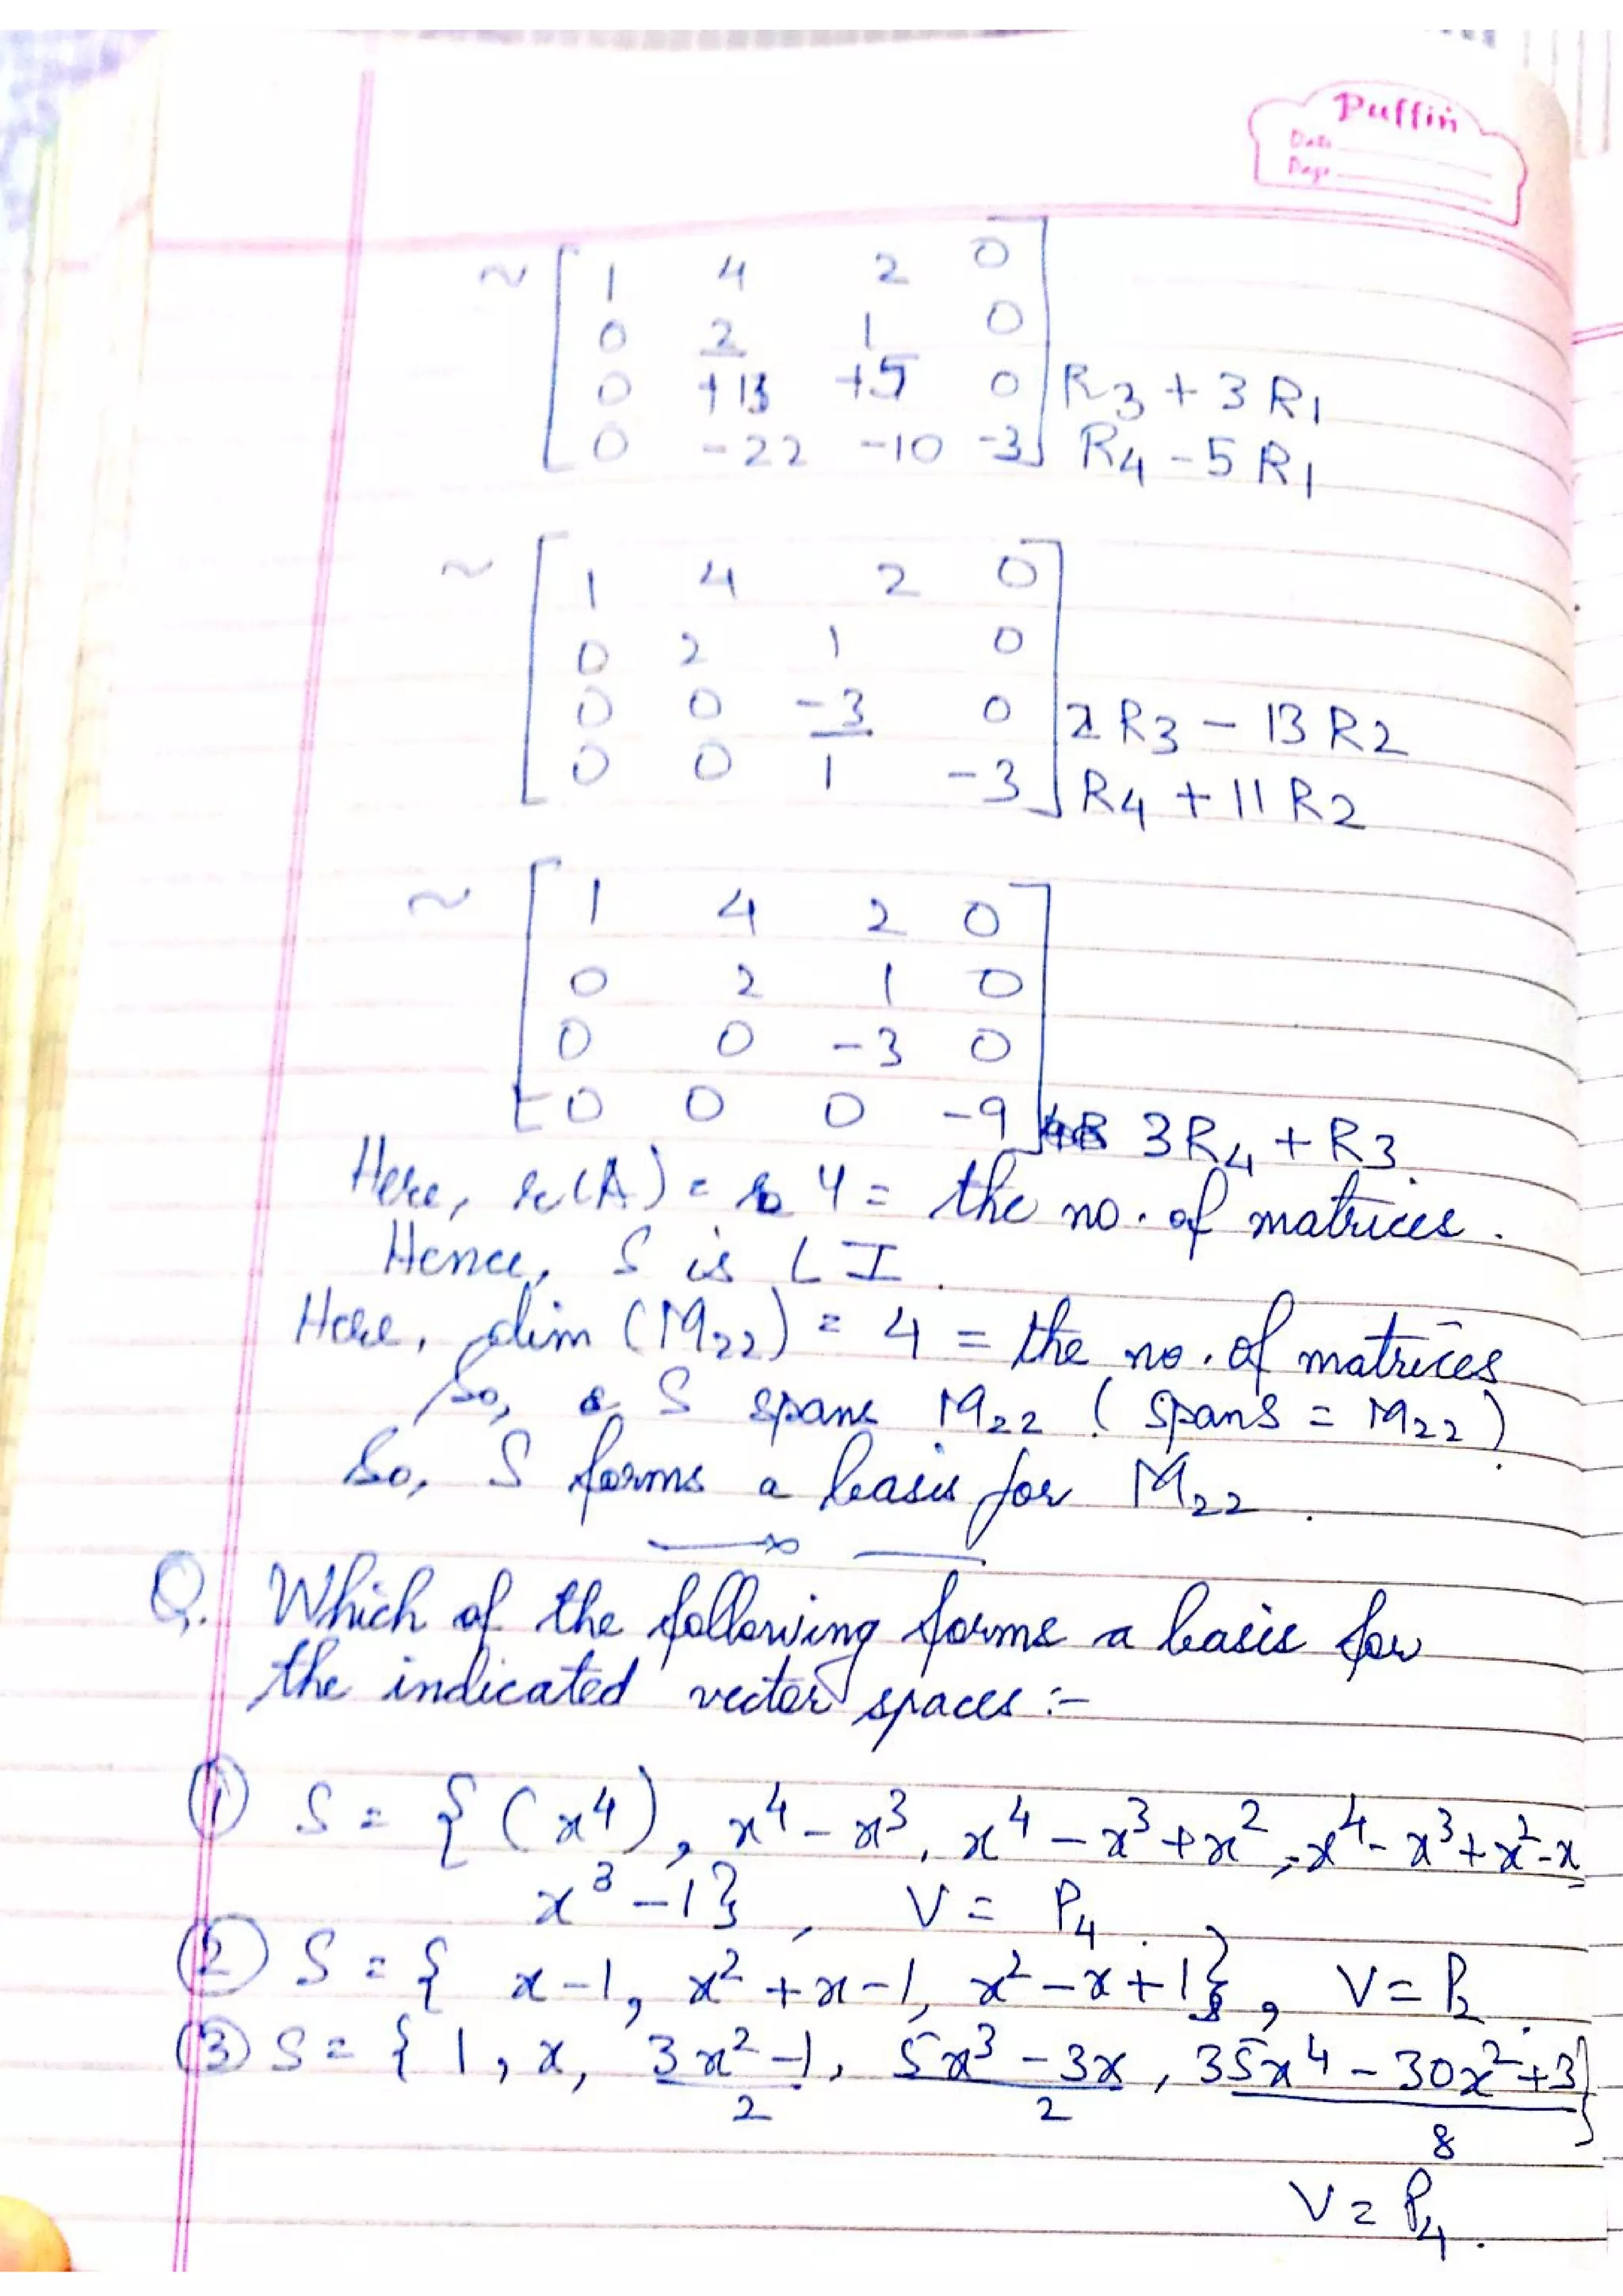 Puffin
Date
Page
~ [ 1 4 2 0
0 2 1 0
0 +13 +5 0 R3 + 3R1
0 -22 -10 -3 ] R4 - 5R1
~ [ 1 4 2 0
0 2 1 0
0 0 -3 0 2R3 - 13R2
0 0 1 -3 ] R4 + 11R2
~ [ 1 4 2 0
0 2 1 0
0 0 -3 0
0 0 0 -9 ] 3R4 + R3
Here, r(A) = 4 = the no. of matrices.
Hence, S is LI.
Here, dim (M22) = 4 = the no. of matrices
So, S spans M22 ( spanS = M22 ).
So, S forms a basis for M22.
Q. Which of the following forms a basis for
the indicated vector spaces :-
① S = { (x⁴), x⁴ - x³, x⁴ - x³ + x², x⁴ - x³ + x² - x
x³ - 1}, V = P4.
② S = { x - 1, x² + x - 1, x² - x + 1}, V = P2.
③ S = { 1, x, 3x² - 1, 5x³ - 3x, 35x⁴ - 30x² + 3}
2 2 8
V = P4.